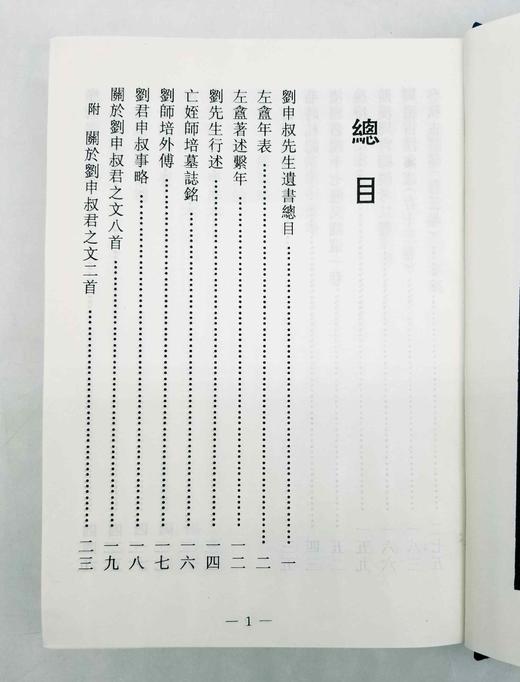 總目
劉申叔先生遺書總目……一
左盦年表……二
左盦著述繫年……一二
劉先生行述……一四
亡姪師培墓誌銘……一六
劉師培外傳……一七
劉君申叔事略……一八
關於劉申叔君之文八首……一九
附 關於劉申叔君之文二首……二三
— 1 —